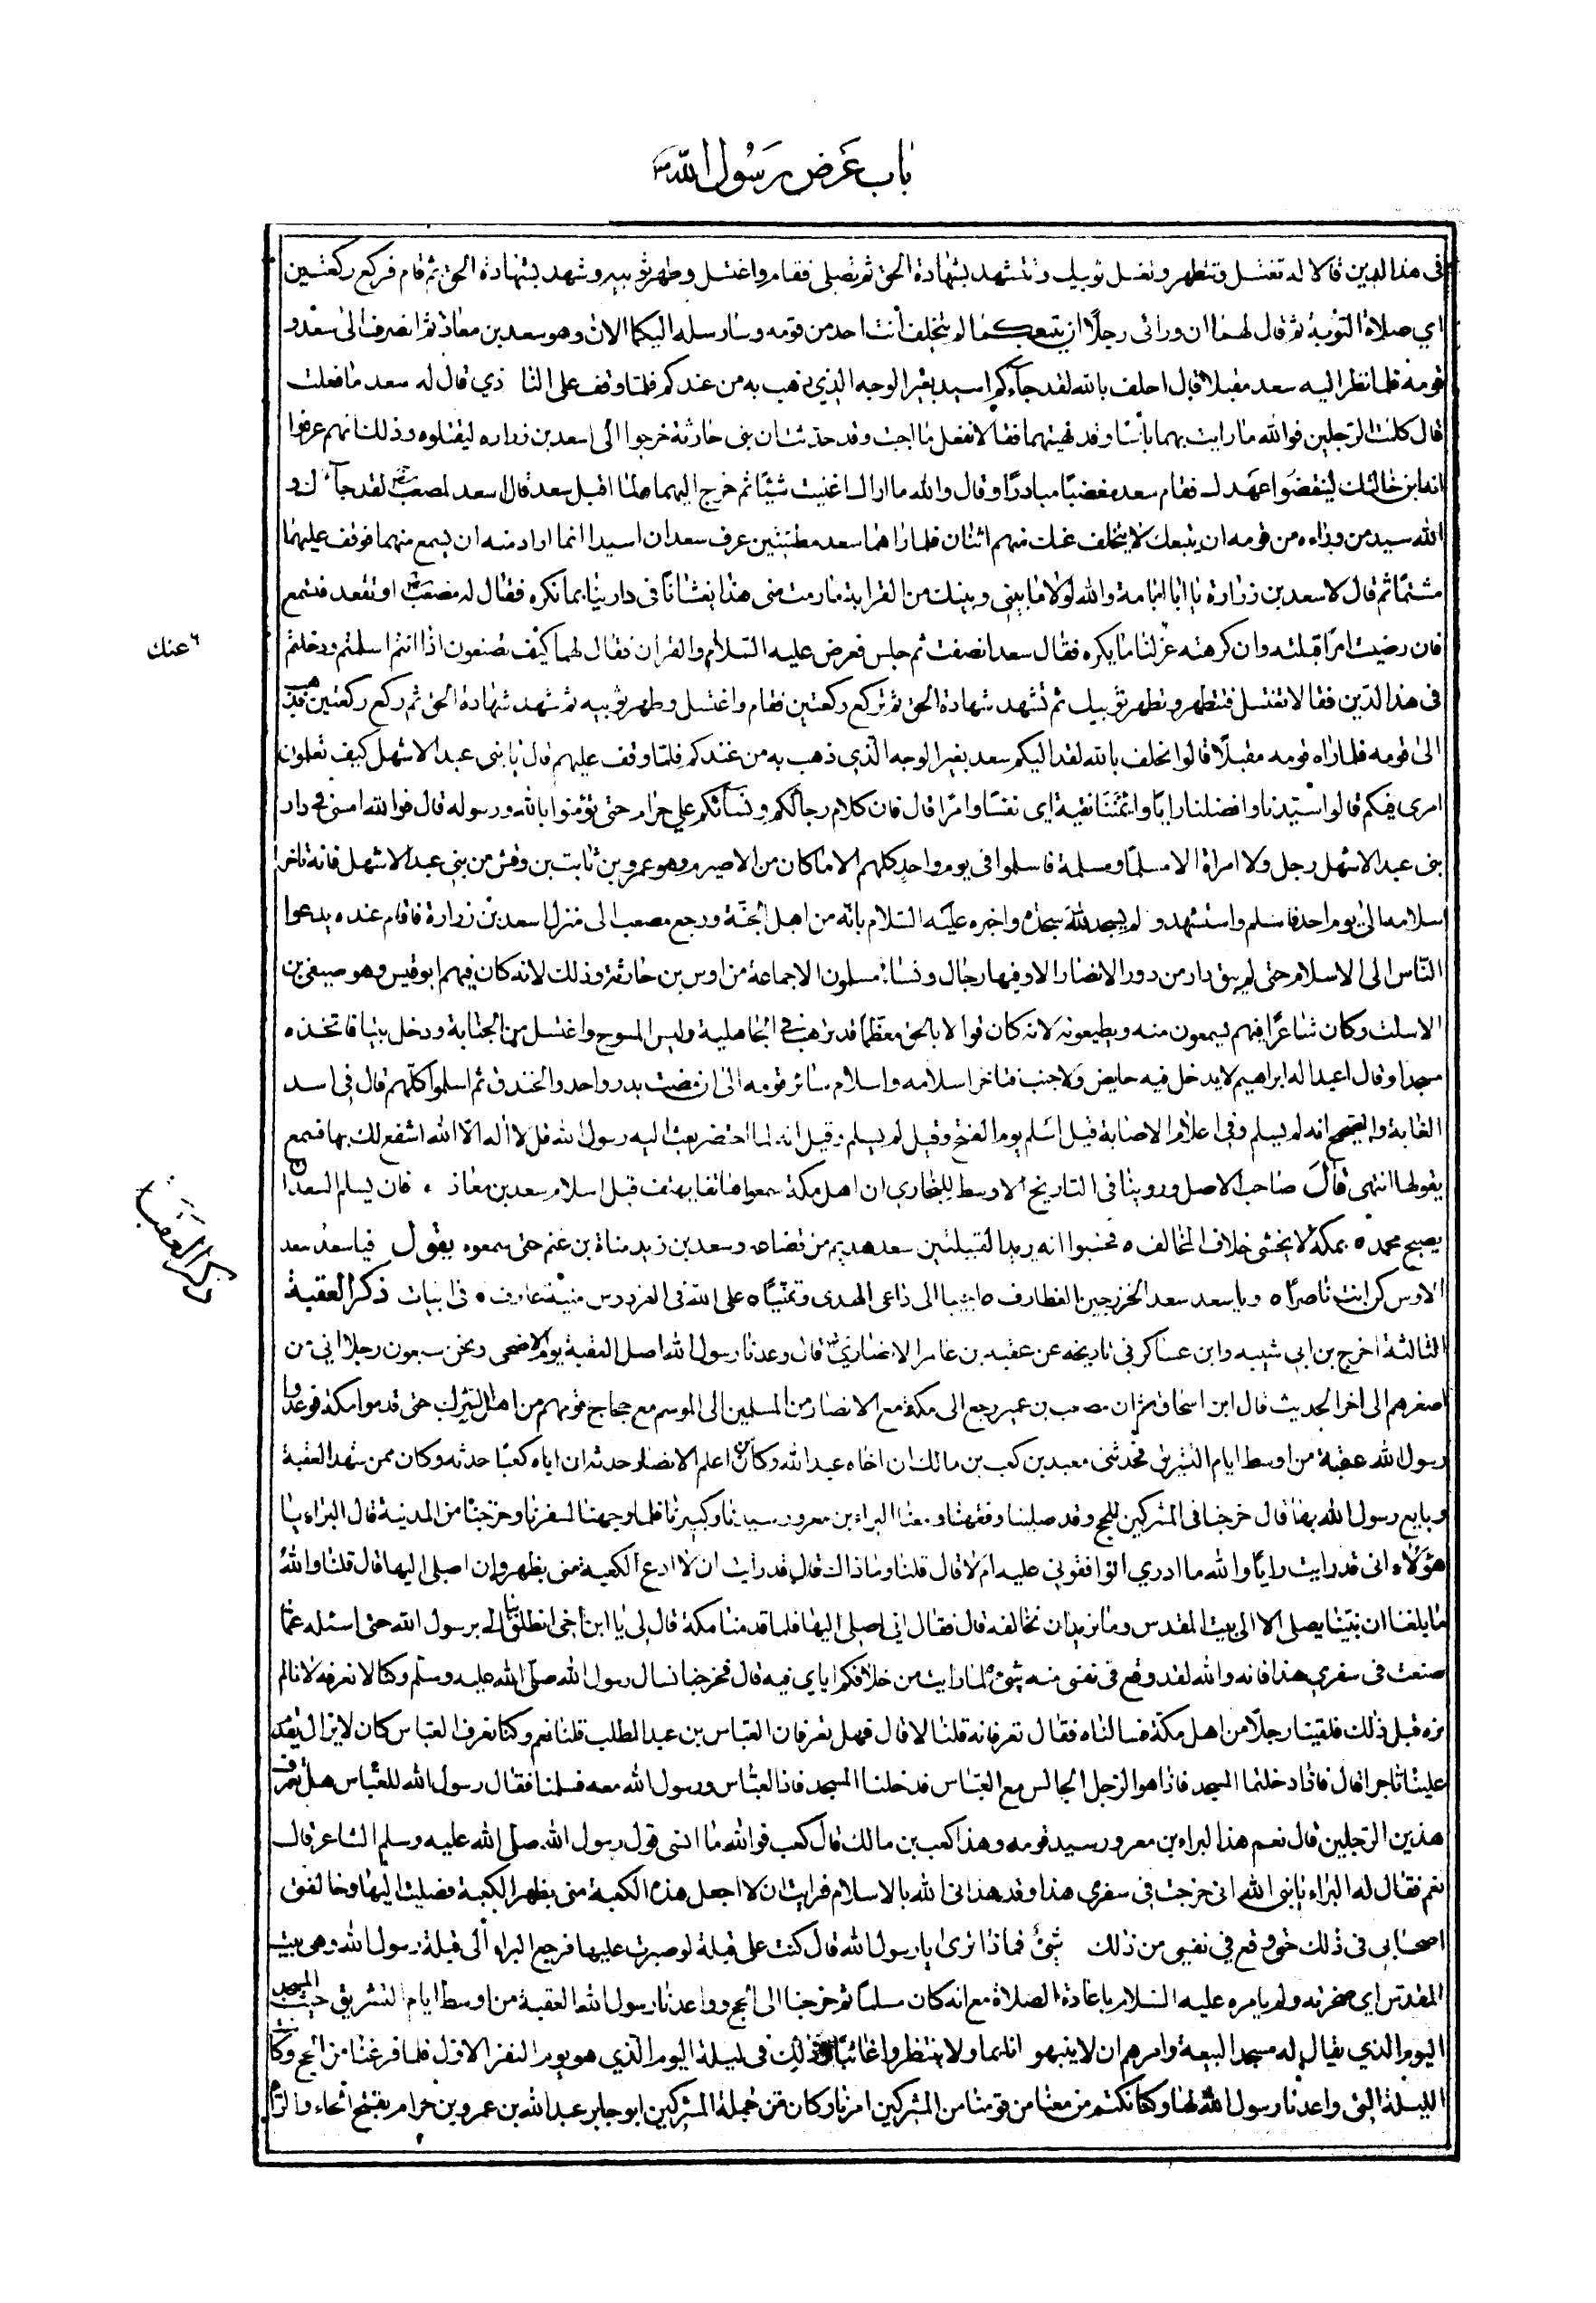 باب عرض رسول الله
فى هذا الدين قالا له تغتسل وتتطهر وتغسل ثوبيك وتتشهد بشهادة الحق ثم تصلى فقام واغتسل وطهر ثوبيه وشهد بشهادة الحق ثم قام فركع ركعتين
اي صلاة التوبة ثم قال لهما ان ورائى رجلا ان يتبعكما لم يتخلف أنت احد من قومه وسارسله اليكما الان وهو سعد بن معاذ ثم انصرف الى سعد و
قومه فلما نظر اليه سعد مقبلا قال احلف بالله لقد جآءكم اسيد بغير الوجه الذي ذهب به من عندكم فلما وقف على النا ذي قال له سعد ما فعلت
قال كلمت الرجلين فوالله ما رايت بهما بأسا وقد نهيتهما فقالا نفعل ما احببت وقد حدثت ان بنى حارثة خرجوا الى اسعد بن زراره ليقتلوه وذلك انهم عرفوا
انه ابن خالتك لينقضوا عهدك فقام سعد مغضبا مبادرا وقال والله ما اراك اغنيت شيئا ثم خرج اليهما فلما اقبل سعد قال اسعد لمصعب لقد جآءك و
الله سيد من وراءه من قومه ان يتبعك لا يتخلف عنك منهم اثنان فلما راهما سعد مطمئنين عرف سعد ان اسيدا انما اراد منه ان يسمع منهما فوقف عليهما
مشتما ثم قال لاسعد بن زرارة يا ابا امامة والله لولا ما بينى وبينك من القرابة ما رمت منى هذا يغشانا فى دارينا بما نكره فقال له مصعب او تقعد فتسمع
فان رضيت امرا قبلته وان كرهته عزلنا ما يكره فقال سعد انصفت ثم جلس فعرض عليه السلام والقران فقال لهما كيف تصنعون اذا انتم اسلمتم ودخلتم
٦ عنك
فى هذا الدين فقالا تغتسل فتتطهر وتطهر ثوبيك ثم تشهد شهادة الحق ثم تركع ركعتين فقام واغتسل وطهر ثوبيه ثم شهد شهادة الحق ثم ركع ركعتين
الى قومه فلما راه قومه مقبلا قالوا نحلف بالله لقد اليكم سعد بغير الوجه الذي ذهب به من عندكم فلما وقف عليهم قال يا بنى عبد الاشهل كيف تعلمون
امرى فيكم قالوا سيدنا وافضلنا رايا وايمننا نقيبة اى نفسا وامرا قال فان كلام رجالكم ونسائكم علي حرام حتى تؤمنوا بالله ورسوله قال فوالله امسى فى دار
بنى عبد الاشهل رجل ولا امراة الا مسلما ومسلمة فاسلموا فى يوم واحد كلهم الا ما كان من الاصيرم وهو عمرو بن ثابت بن وقش من بنى عبد الاشهل فانه تاخر
سلامه الى يوم احد فاسلم واستشهد و لم يسجد لله سجدة واخبره عليه السلام بانه من اهل الجنة ورجع مصعب الى منزل اسعد بن زرارة فاقام عنده يدعوا
الناس الى الاسلام حتى لم يبق دار من دور الانصار الا وفيها رجال ونساء مسلمون الا جماعة من اوس بن حارثة وذلك لانه كان فيهم ابو قيس وهو صيفى بن
الاسلت وكان شاعرا فيهم يسمعون منه ويطيعونه لانه كان قوالا بالحق معظما قد ترهب فى الجاهلية ولبس المسوح واغتسل من الجنابة ودخل بيتا فاتخذه
مسجدا وقال اعبد اله ابراهيم لا يدخل فيه حايض ولا جنب فتاخر اسلامه واسلام سائر قومه الى ان مضت بدر واحد والخندق ثم اسلموا كلهم قال فى اسد
الغابة والصحيح انه لم يسلم وفى اعلام الاصابة قيل اسلم يوم الفتح وقيل لم يسلم وقيل انه لما احتضر بعث اليه رسول الله قل لا اله الا الله اشفع لك بها فسمع
يقولها انتهى قال صاحب الاصل وروينا فى التاريخ الاوسط للبخاري ان اهل مكة سمعوا هاتفا يهتف قبل اسلام سعد بن معاذ ٠ فان يسلم السعدان
يصبح محمد ٥ بمكة لا يخشى خلاف المخالف ٥ فحسبوا انه يريد القبيلتين سعد هذيم من قضاعه وسعد بن زيد مناة بن غنم حتى سمعوه يقول فيا سعد سعد
الاوس كن انت ناصرا ٥ ويا سعد سعد الخزرجين الغطارف ٥ اجيبا الى داعى الهدى وتمنيا ٥ على الله فى الفردوس منية عارف ٥ فى ابيات ذكر العقبة
ذكر العقبه
الثالثة اخرج بن ابى شيبه وابن عساكر فى تاريخه عن عقبه بن عامر الانصارى قال وعدنا رسول الله اصل العقبة يوم الاضحى ونحن سبعون رجلا انى من
اصغرهم الى اخر الحديث قال ابن اسحاق ثم ان مصعب بن عمير رجع الى مكة مع الانصار من المسلمين الى الموسم مع حجاج قومهم من اهل الشرك حتى قدموا مكة فوعدوا
رسول الله عقبة من اوسط ايام التشريق فحدثنى معبد بن كعب بن مالك ان اخاه عبد الله وكان من اعلم الانصار حدثه ان اباه كعبا حدثه وكان ممن شهد العقبة
وبايع رسول الله بها قال خرجنا فى المشركين للحج وقد صلينا وفقهنا ومعنا البراء بن معرور سيدنا وكبيرنا فلما وجهنا لسفرنا وخرجنا من المدينة قال البراء يا
هؤلاء انى قد رايت رايا والله ما ادري اتوافقونى عليه ام لا قال قلنا وما ذاك قال قد رايت ان لا ادع الكعبة منى بظهر وان اصلى اليها قال قلنا والله
ما بلغنا ان نبينا يصلى الا الى بيت المقدس وما نريد ان نخالفه قال فقال انى اصلى اليها فلما قدمنا مكة قال لى يا ابن اخى انطلق بنا الى رسول الله حتى اسئله عما
صنعت فى سفرى هذا فانه والله لقد وقع فى نفسى منه شئ لما رايت من خلافكم اياى فيه قال فخرجنا نسال رسول الله صلى الله عليه وسلم وكنا لا نعرفه لانا لم
نره قبل ذلك فلقينا رجلا من اهل مكة فسالناه فقال تعرفانه قلنا لا قال فهل تعرفان العباس بن عبد المطلب قلنا نعم وكنا نعرف العباس كان لا يزال يقدم
علينا تاجرا قال فاذا دخلتما المسجد فاذا هو الرجل الجالس مع العباس فدخلنا المسجد فاذا العباس ورسول الله معه فسلمنا فقال رسول الله للعباس هل تعرف
هذين الرجلين قال نعم هذا البراء بن معرور سيد قومه وهذا كعب بن مالك قال كعب فوالله ما انسى قول رسول الله صلى الله عليه وسلم الشاعر قال
نعم فقال له البراء يا نبى الله انى خرجت فى سفرى هذا وقد هدانى الله بالاسلام فرايت ان لا اجعل هذه الكعبة منى بظهر الكعبة فصليت اليها وخالفنى
اصحابى فى ذلك حتى وقع فى نفسى من ذلك شئ فماذا ترى يا رسول الله قال كنت على قبلة لو صبرت عليها فرجع البراء الى قبلة رسول الله وهى بيت
المقدس اي صخرته ولم يامره عليه السلام باعادة الصلاة مع انه كان مسلما ثم خرجنا الى الحج وواعدنا رسول الله العقبة من اوسط ايام التشريق حيث المسجد
اليوم الذي يقال له مسجد البيعة وامرهم ان لا ينبهو انائما ولا ينتظروا غائبا وذلك فى ليلة اليوم الذي هو يوم النفر الاول فلما فرغنا من الحج وكانت
الليلة التى واعدنا رسول الله لها وكنا نكتم من معنا من قومنا من المشركين امرنا وكان من جملة المشركين ابو جابر عبد الله بن عمرو بن حرام بفتح الحاء والراء